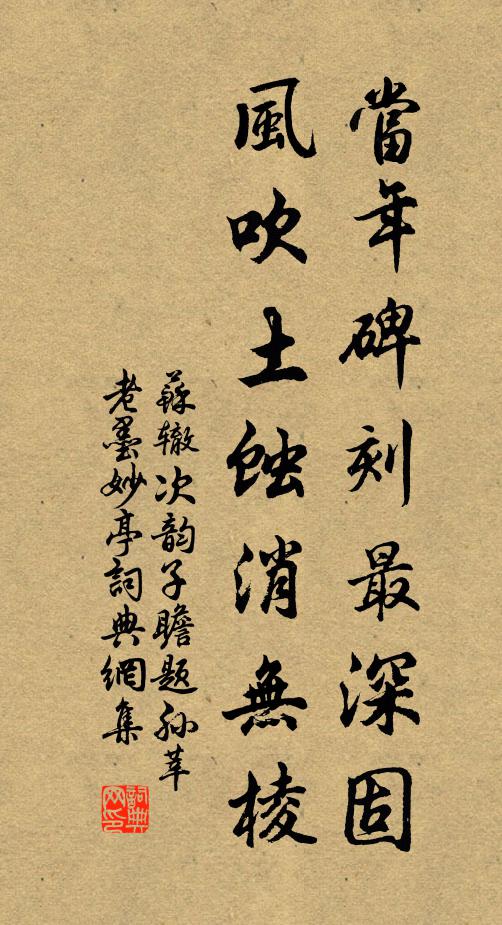 當年碑刻最深固
風吹土蝕消無棱
蘇辙次韵子瞻題孙莘
老墨妙亭詞典網集
詞典
网印